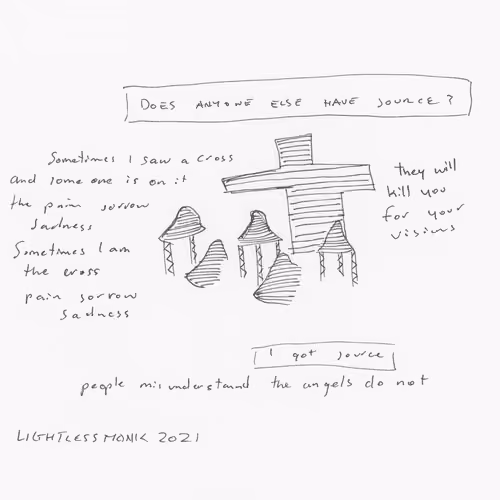 DOES ANYONE ELSE HAVE SOURCE?
Sometimes I saw a cross
and someone is on it
the pain sorrow
sadness
Sometimes I am
the cross
pain sorrow
sadness
they will
kill you
for your
visions
I got source
people misunderstand the angels do not
LIGHTLESSMONK 2021